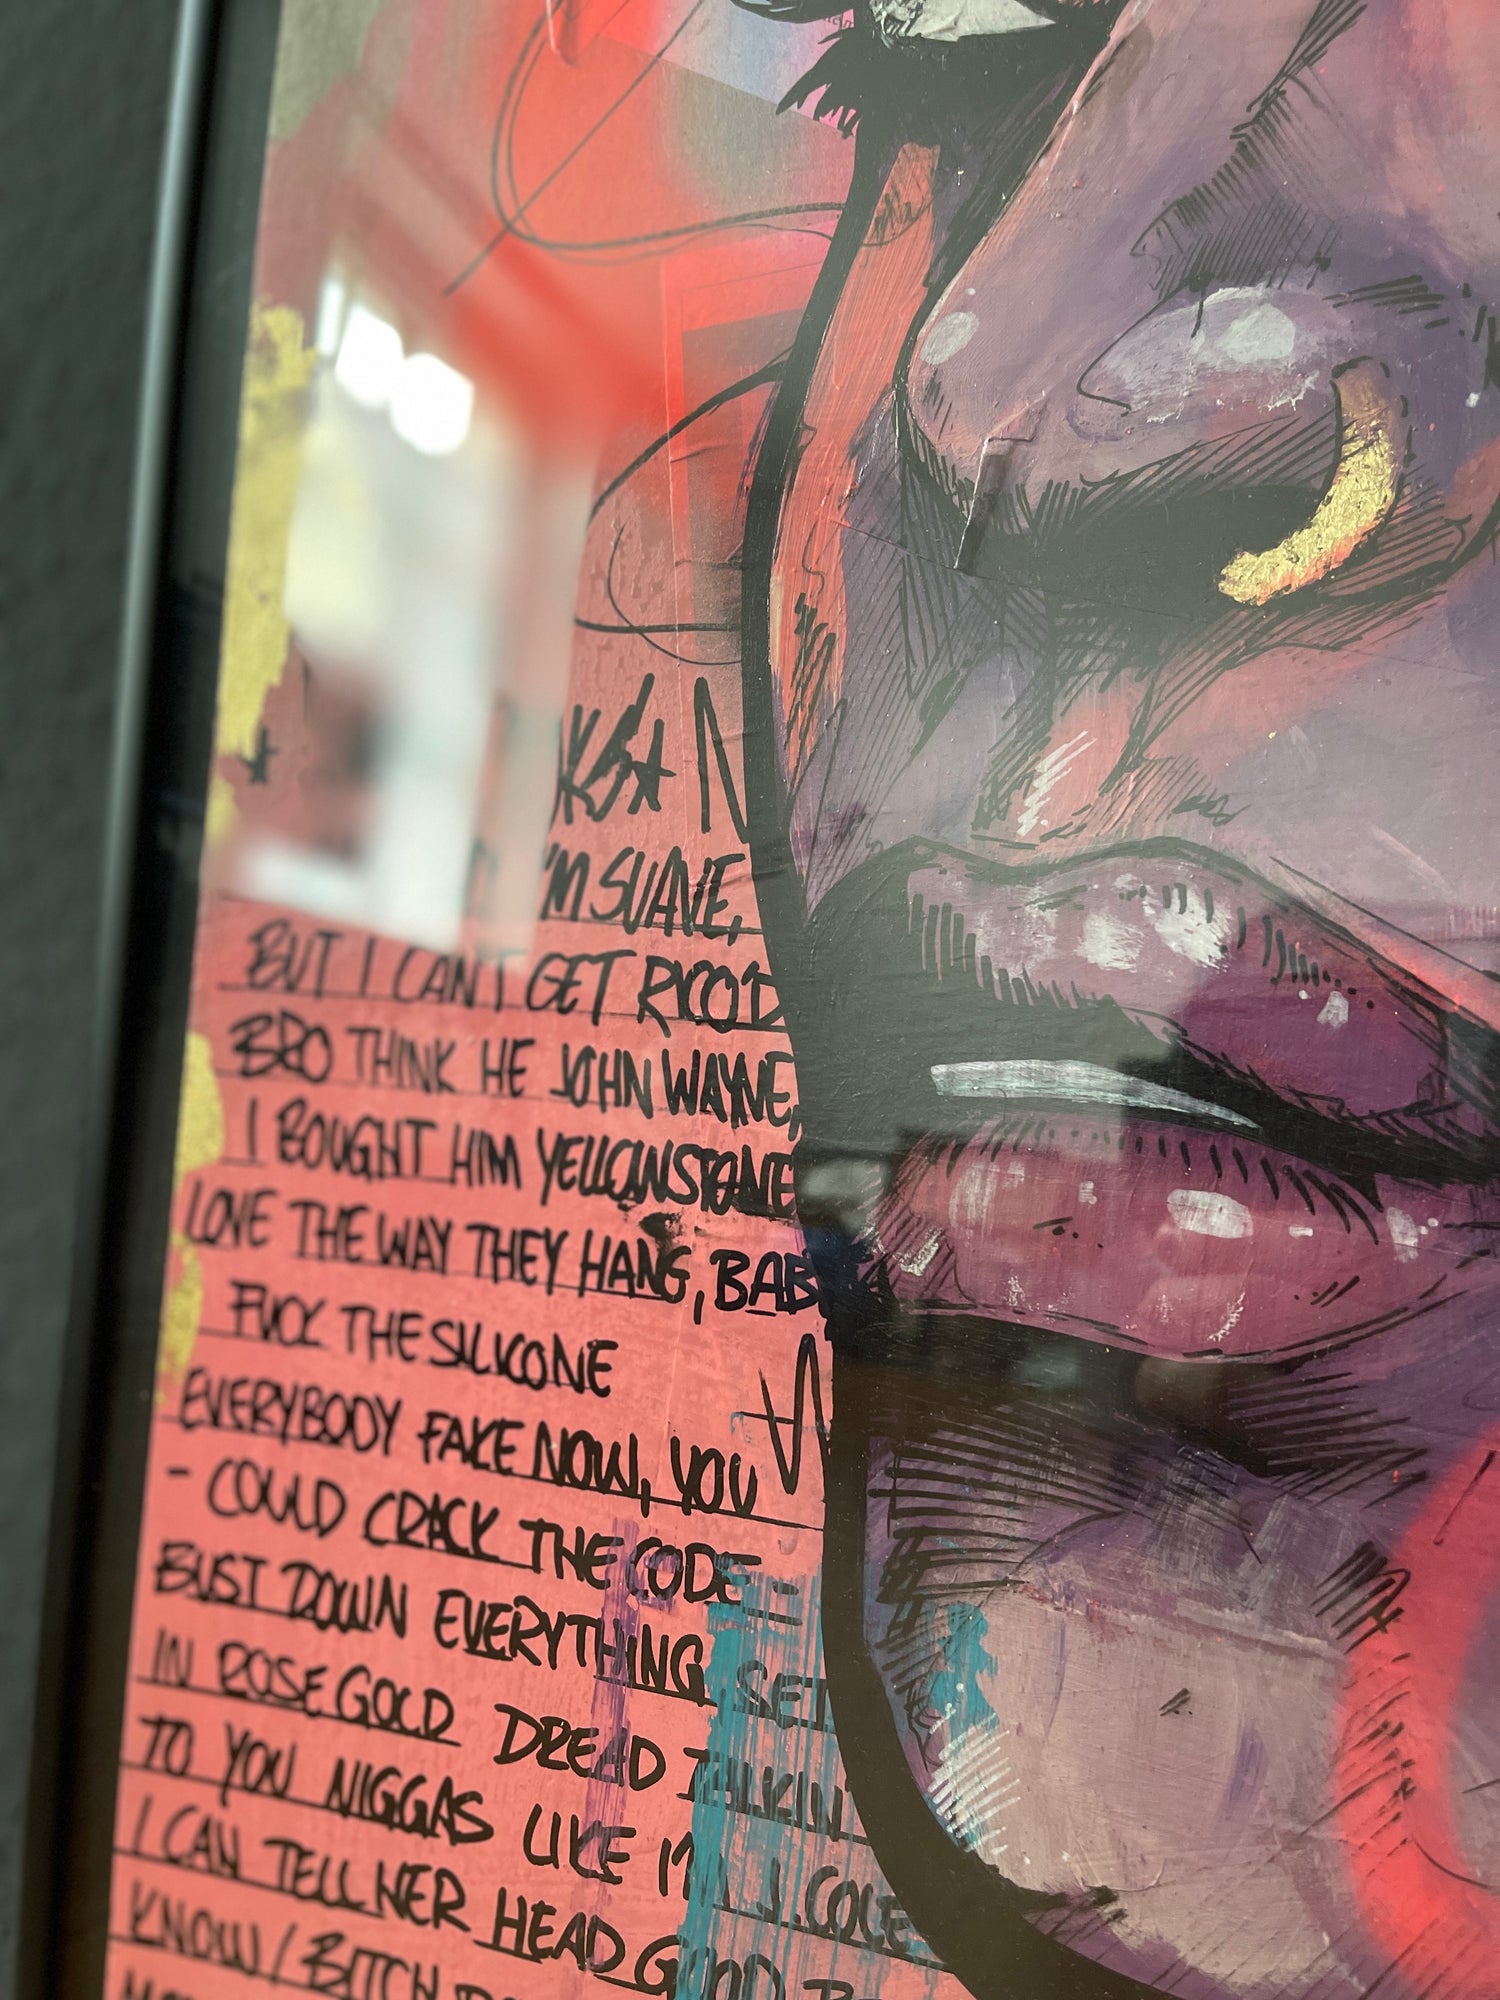 'M SUAVE,
BUT I CAN'T GET RICO'D
BRO THINK HE JOHN WAYNE,
I BOUGHT HIM YELLOWSTONE
LOVE THE WAY THEY HANG, BAB
FUCK THE SILICONE
EVERYBODY FAKE NOW, YOU
- COULD CRACK THE CODE -
BUST DOWN EVERYTHING SET
IN ROSE GOLD DREAD TALKIN
TO YOU NIGGAS LIKE I'M J. COLE
I CAN TELL HER HEAD GOOD
KNOW / BITCH